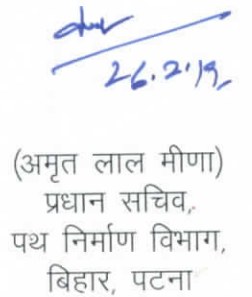 26.2.19
(अमृत लाल मीणा)
प्रधान सचिव,
पथ निर्माण विभाग,
बिहार, पटना